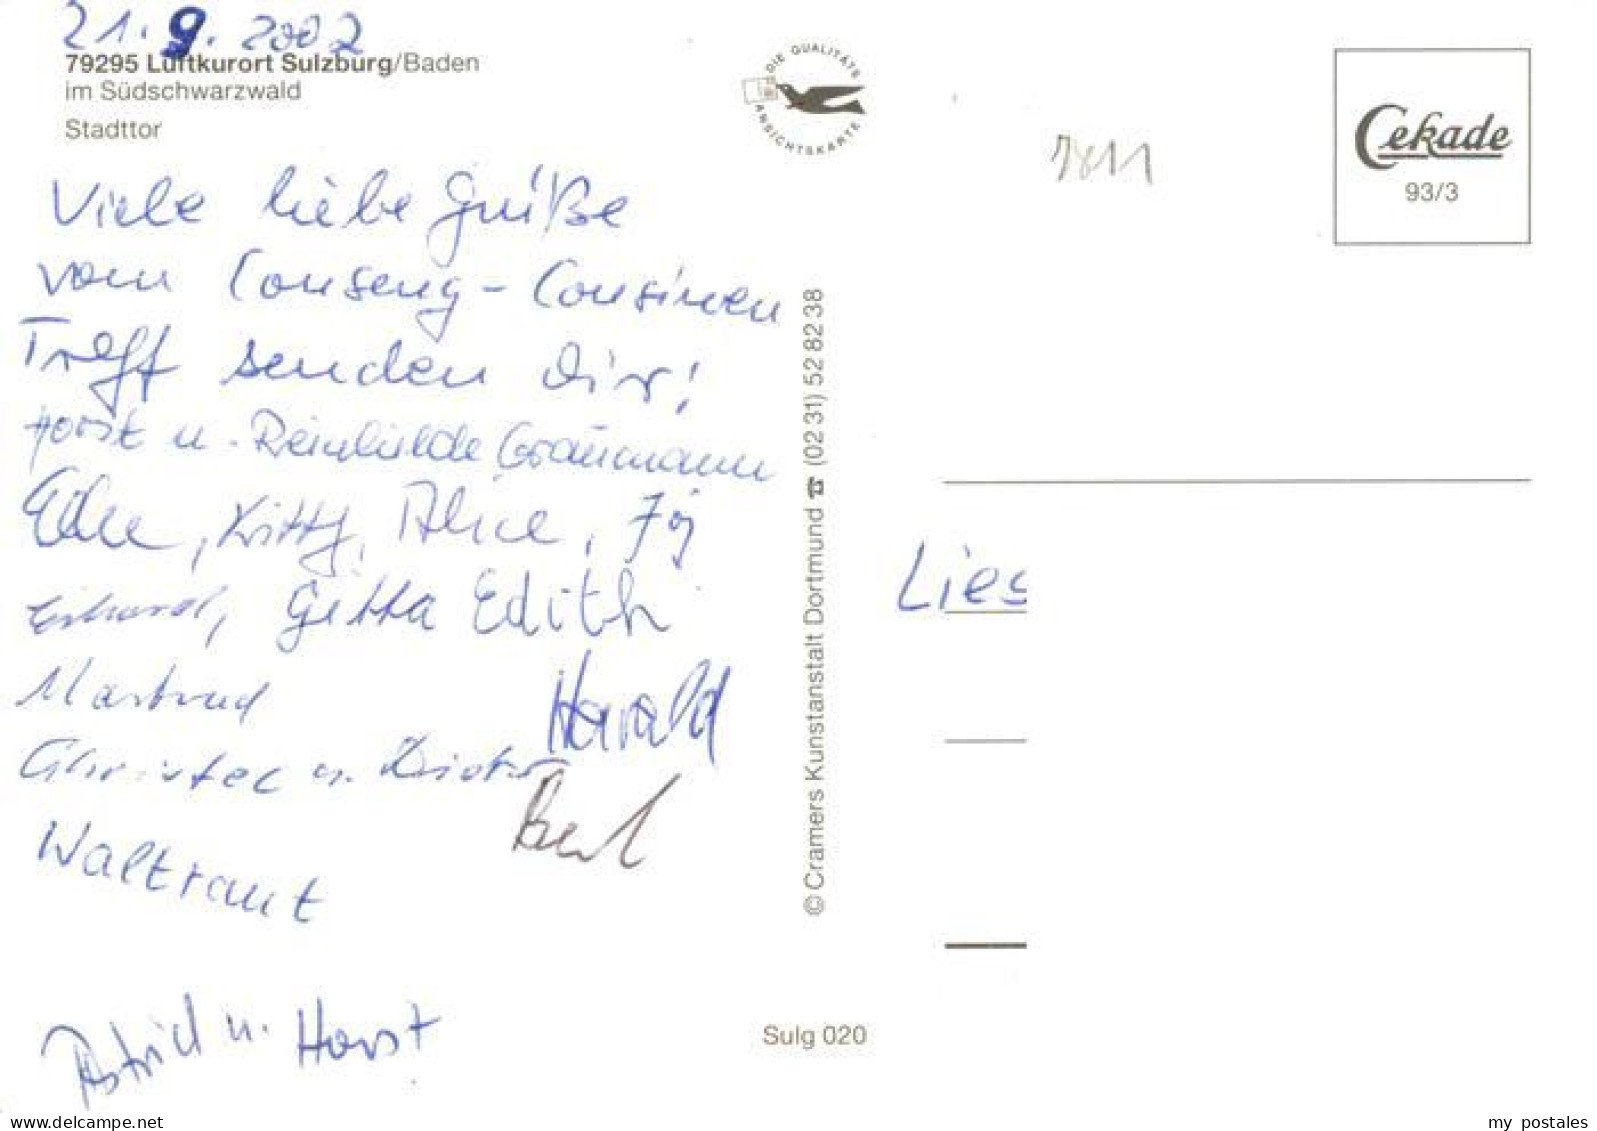 21.9.2002
79295 Luftkurort Sulzburg/Baden
im Südschwarzwald
Stadttor
DIE QUALITÄTS
ANSICHTSKARTE
Cekade
93/3
7811
Viele liebe Grüße
vom Couseng-Cousinen
Treff senden Dir!
Horst u. Reinhilde Graumann
Kitty, Alice,
Erhard, Gitta Edith
Martrud
Harald
u. Dieter
Waltraut
Astrid u. Horst
Lies
© Cramers Kunstanstalt Dortmund ☎ (02 31) 52 82 38
Sulg 020
my postales